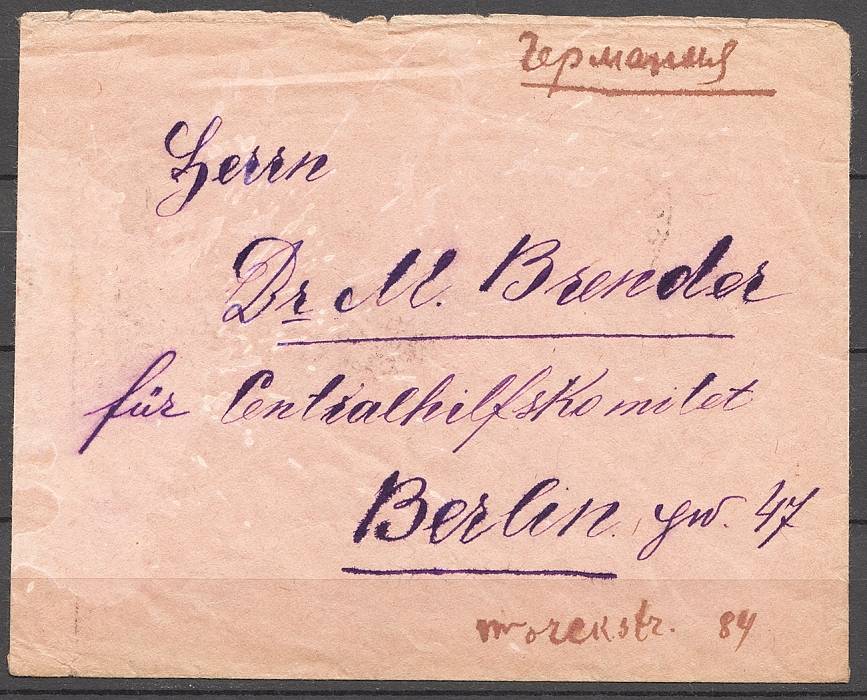 Германия
Herrn
Dr M. Brender
für Centralhilfskomitet
Berlin. SW. 47
84